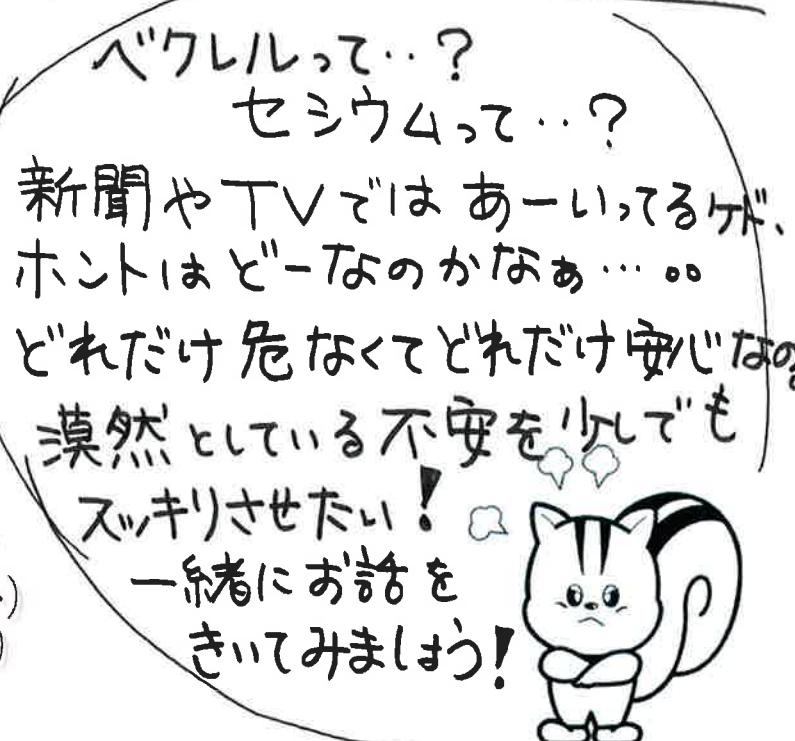 ベクレルって‥?
セシウムって‥?
新聞やTVでは あーいってるケド、
ホントは どーなのかなぁ…。。
どれだけ危なくてどれだけ安心なの
漠然としている不安を少しでも
スッキリさせたい!
一緒にお話を
きいてみましょう!